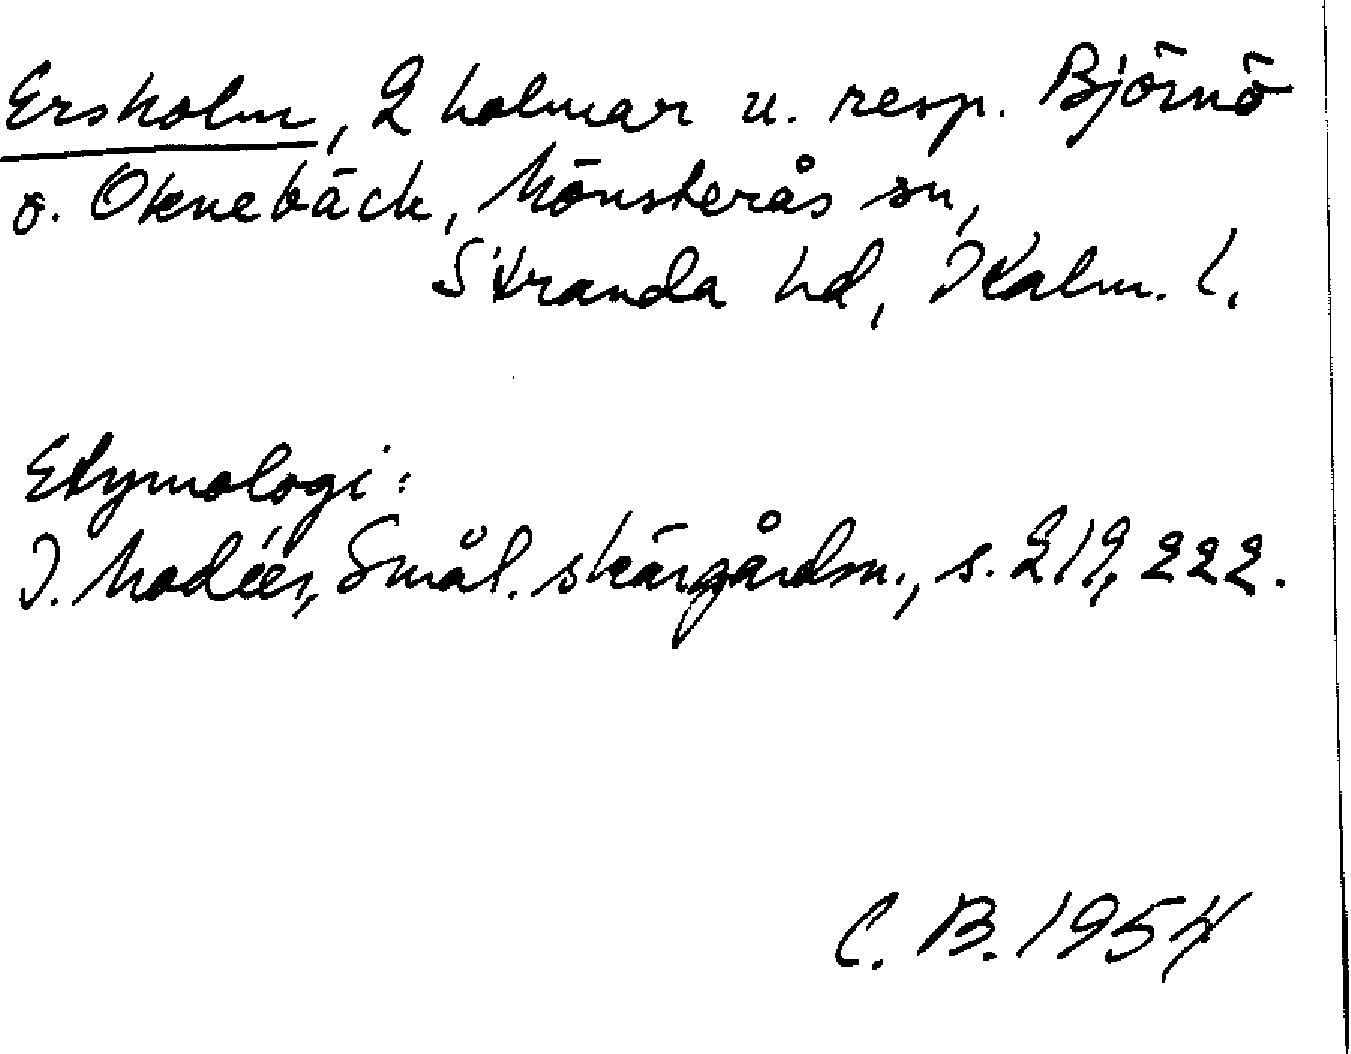 Ersholm, 2 holmar u. resp. Björnö
o. Oknebäck, Mönsterås sn,
Stranda hd, Kalm. l.
Etymologi:
I. Modéer, Smål. skärgårdsn., s. 219, 222.
C. B. 1954